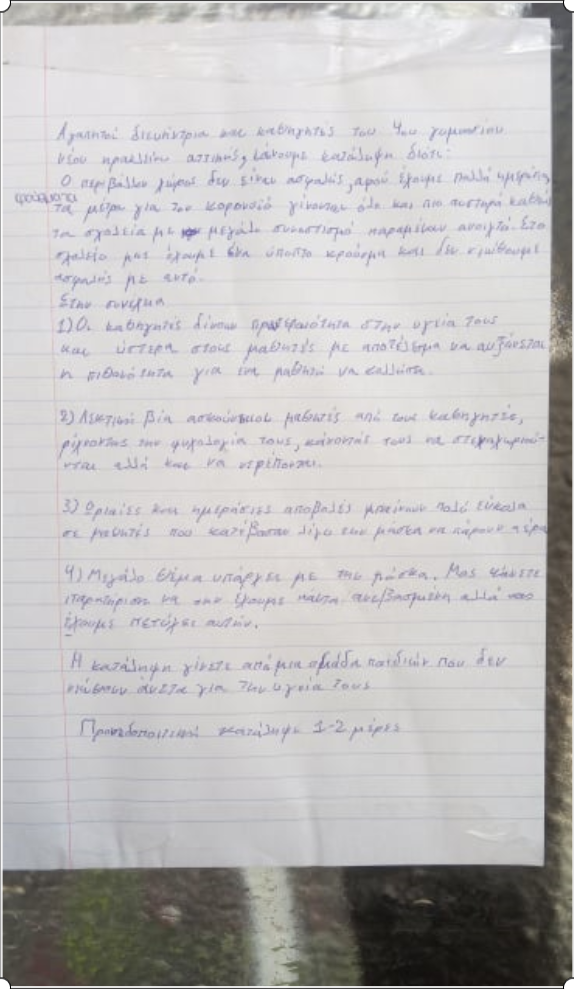 Αγαπητοί διευθύντρια και καθηγητές του 4ου γυμνασίου
νέου ηρακλείου αττικής, κάνουμε κατάληψη διότι:
Ο περιβάλλον χώρος δεν είναι ασφαλής, αφού έχουμε πολλά ημερήσια
κρούσματα
τα μέτρα για τον κορονοϊό γίνονται όλο και πιο αυστηρά καθώς
τα σχολεία με μεγάλο συνωστισμό παραμένουν ανοιχτά. Στο
σχολείο μας έχουμε ένα ύποπτο κρούσμα και δεν νιώθουμε
ασφαλής με αυτό.
Στην συνέχεια
1) Οι καθηγητές δίνουν προτεραιότητα στην υγεία τους
και ύστερα στους μαθητές με αποτέλεσμα να αυξάνεται
η πιθανότητα για ένα μαθητή να κολλήσει.
2) Λεκτική βία ασκούν μαθητές από τους καθηγητές,
ρίχνοντας την ψυχολογία τους, κάνοντάς τους να
αλλά και να ντρέπονται.
3) Ωριαίες και ημερήσιες αποβολές μπαίνουν πολύ εύκολα
σε μαθητές που κατέβασαν λίγο την μάσκα να πάρουν αέρα
4) Μεγάλο θέμα υπάρχει με την μάσκα. Μας κάνετε
παρατήρηση να την έχουμε πάντα ανεβασμένη αλλά
έχουμε πετύχει αυτήν.
Η κατάληψη γίνετε από μια ομάδα παιδιών που δεν
νιώθουν άνετα για την υγεία τους
Προειδοποιητική κατάληψη 1-2 μέρες